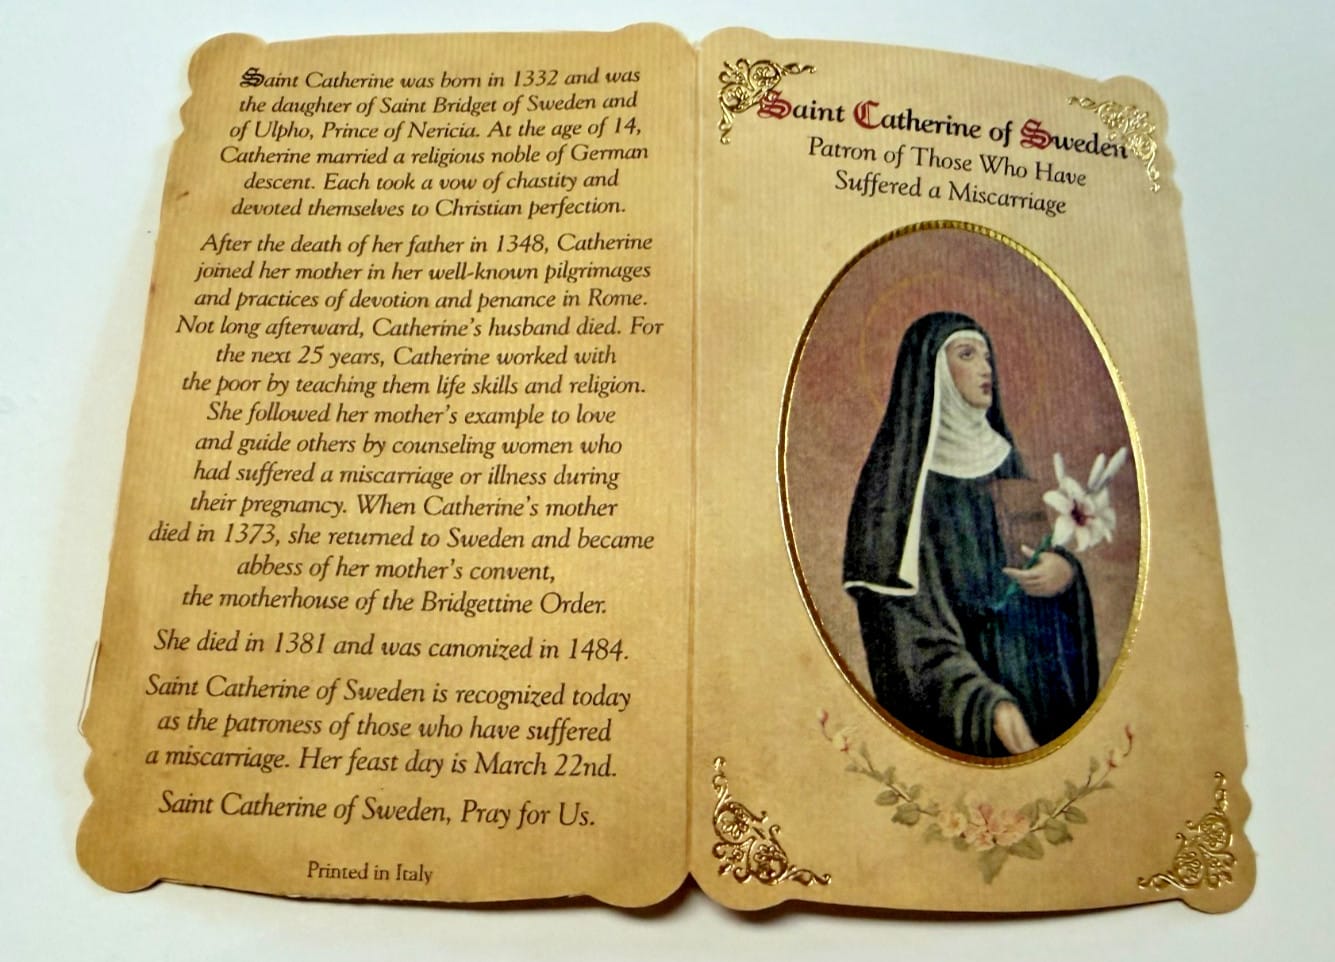 Saint Catherine was born in 1332 and was
the daughter of Saint Bridget of Sweden and
of Ulpho, Prince of Nericia. At the age of 14,
Catherine married a religious noble of German
descent. Each took a vow of chastity and
devoted themselves to Christian perfection.
After the death of her father in 1348, Catherine
joined her mother in her well-known pilgrimages
and practices of devotion and penance in Rome.
Not long afterward, Catherine's husband died. For
the next 25 years, Catherine worked with
the poor by teaching them life skills and religion.
She followed her mother's example to love
and guide others by counseling women who
had suffered a miscarriage or illness during
their pregnancy. When Catherine's mother
died in 1373, she returned to Sweden and became
abbess of her mother's convent,
the motherhouse of the Bridgettine Order.
She died in 1381 and was canonized in 1484.
Saint Catherine of Sweden is recognized today
as the patroness of those who have suffered
a miscarriage. Her feast day is March 22nd.
Saint Catherine of Sweden, Pray for Us.
Printed in Italy
Saint Catherine of Sweden
Patron of Those Who Have
Suffered a Miscarriage